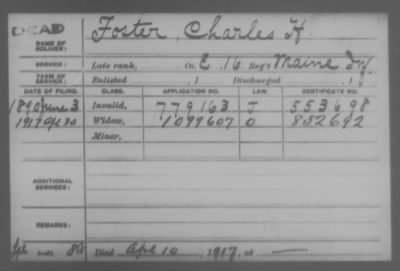 DEAD
NAME OF SOLDIER: Foster, Charles H.
SERVICE: Late rank, Co. E, 16 Reg't Maine Inf.
TERM OF SERVICE: Enlisted , 1 Discharged , 1
DATE OF FILING. CLASS. APPLICATION NO. LAW. CERTIFICATE NO.
1890 June 3 Invalid, 779163 J 553698
1917 Apl 20 Widow, 1099607 O 852692
Minor,
ADDITIONAL SERVICES:
REMARKS:
Died Apl 10, 1917, at —